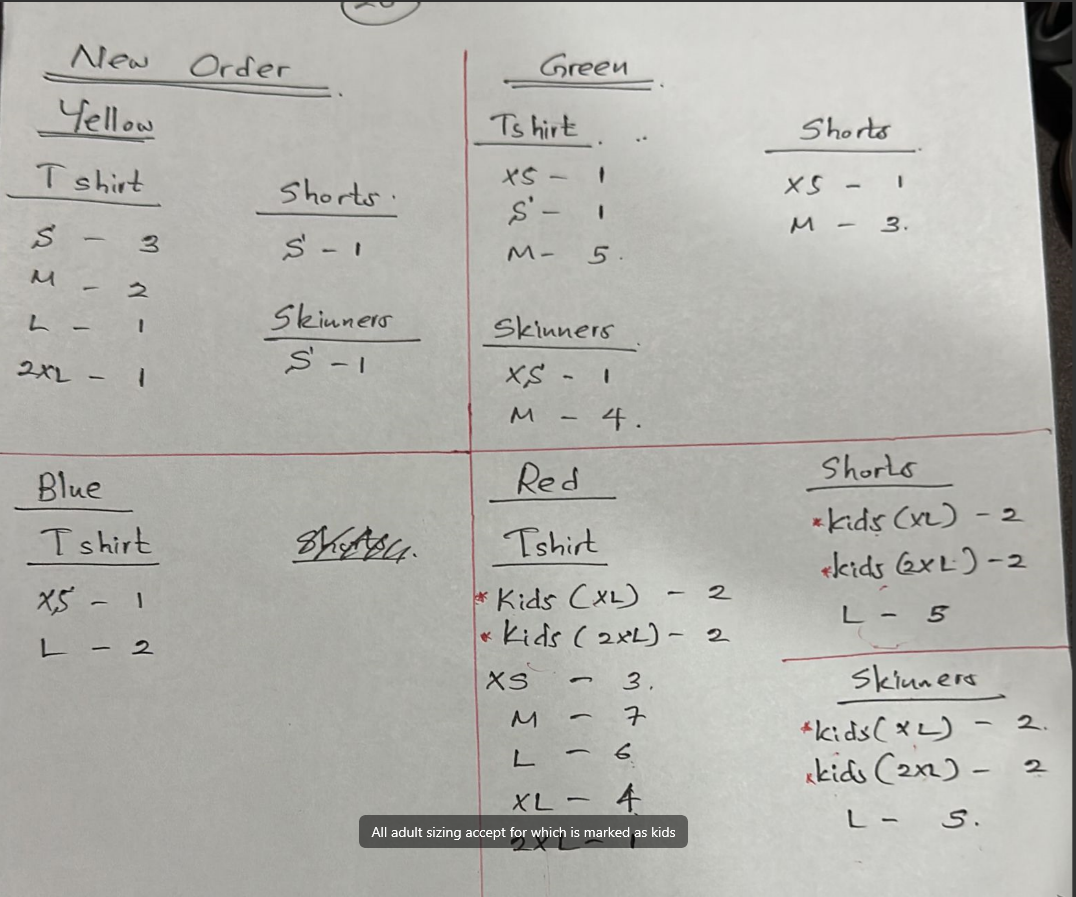 New Order
Yellow
T shirt
S - 3
M - 2
L - 1
2XL - 1
Shorts
S - 1
Skinners
S - 1
Green
Tshirt
XS - 1
S - 1
M - 5.
Shorts
XS - 1
M - 3.
Skinners
XS - 1
M - 4.
Blue
T shirt
XS - 1
L - 2
Red
Tshirt
* Kids (XL) - 2
* Kids (2XL) - 2
XS - 3.
M - 7
L - 6
XL - 4
2XL - 1
Shorts
*kids (XL) - 2
*kids (2XL) - 2
L - 5
Skinners
*kids (XL) - 2.
*kids (2XL) - 2
L - 5.
All adult sizing accept for which is marked as kids